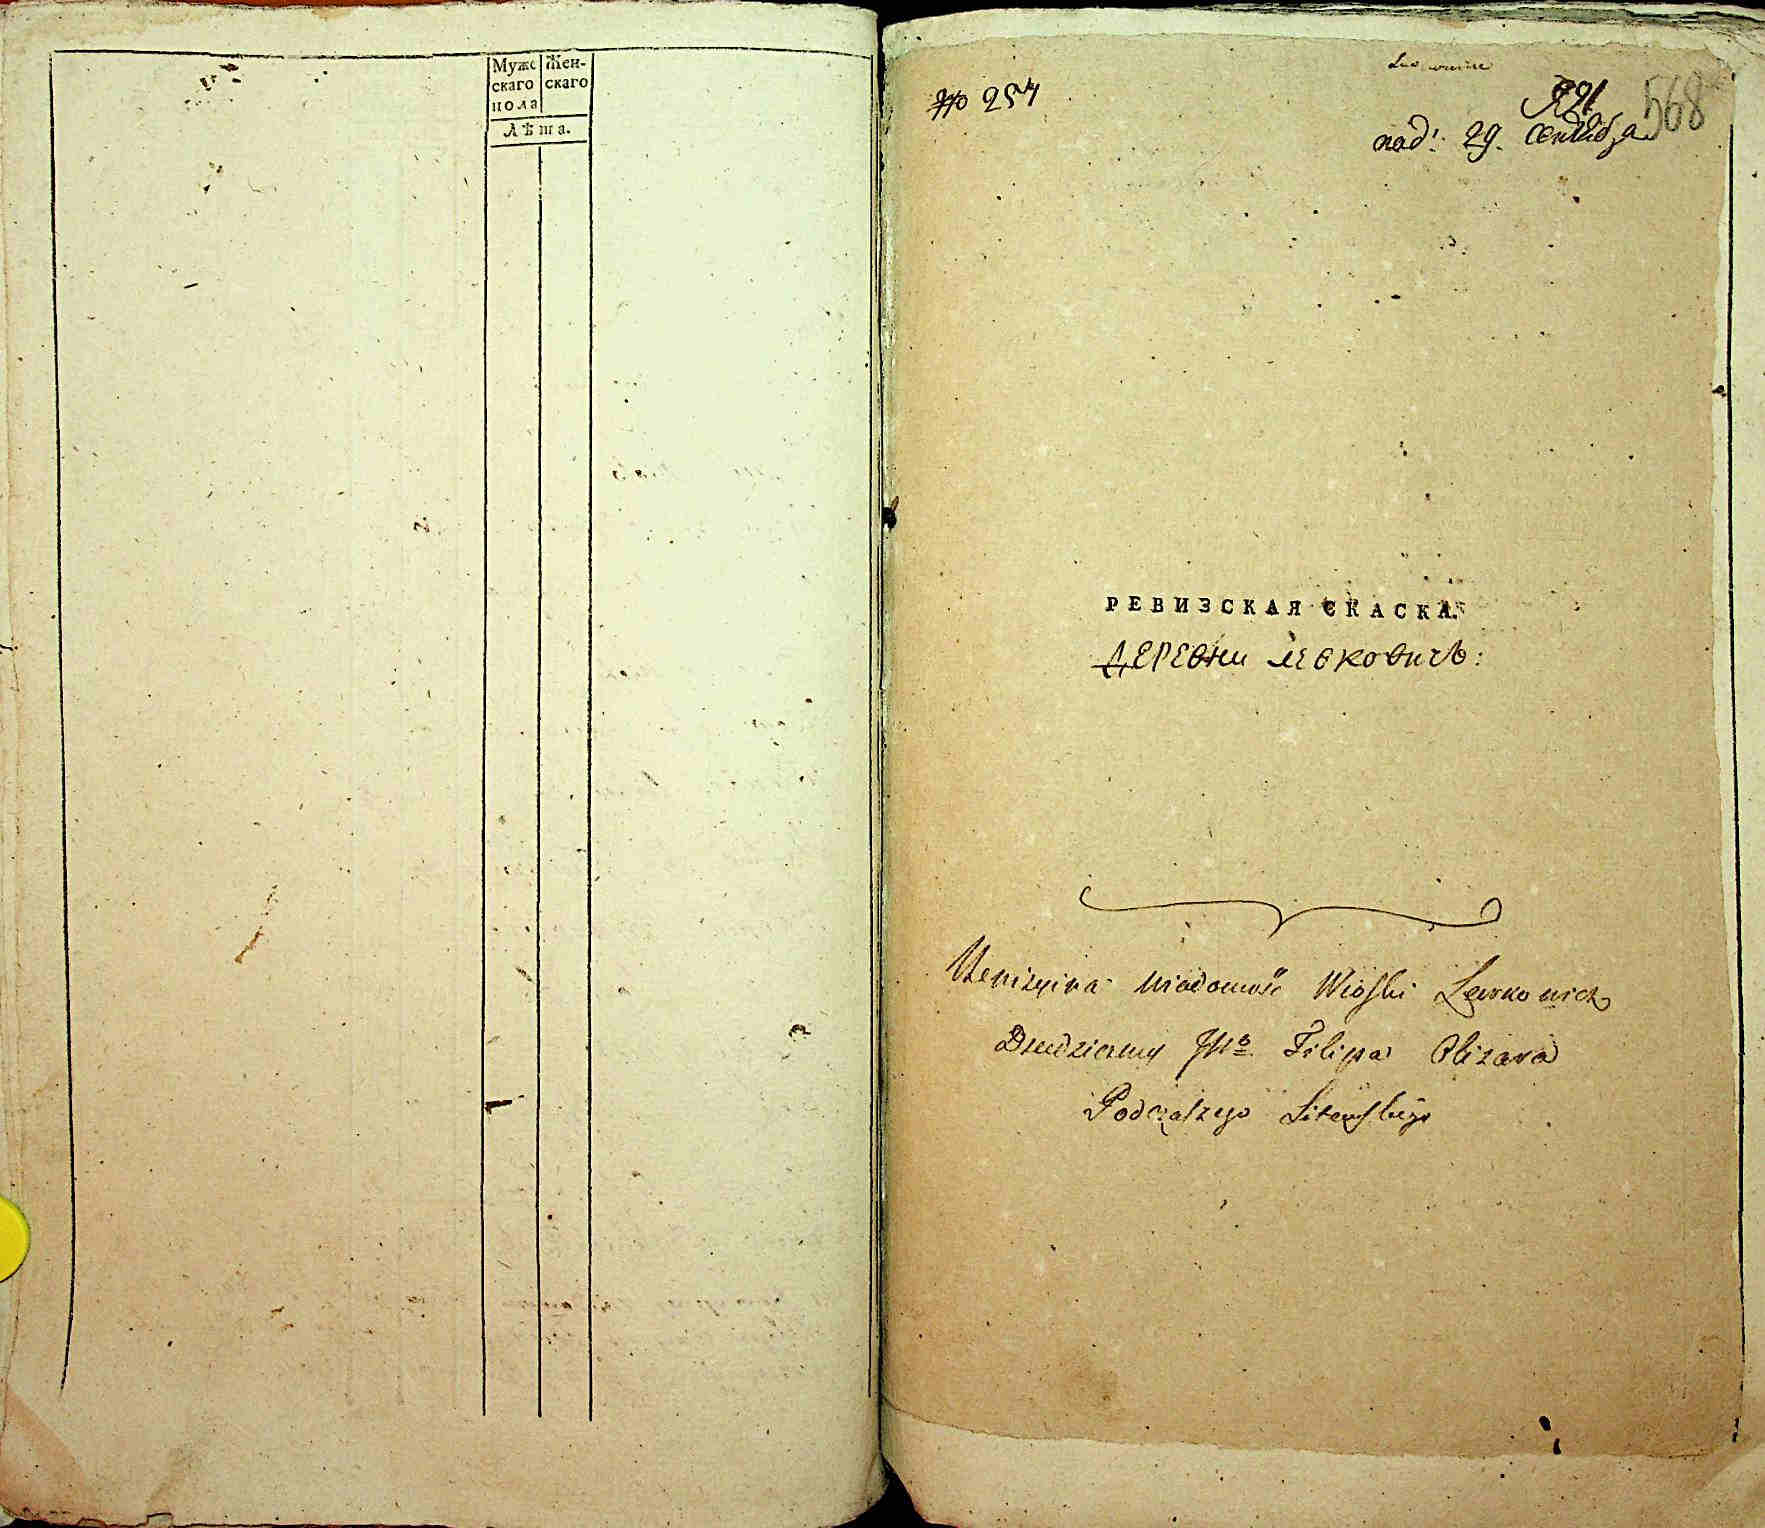 Мужс Жен-
скаго скаго
пола
Лѣта.
№ 254
568
под: 29. Сентября
РЕВИЗСКАЯ СКАСКА.
Деревни Левковичъ:
wiadomość Wioski Lewkowicz
Dziedziczney JWo Filipa Olizara
Podczaszego Litewskiego